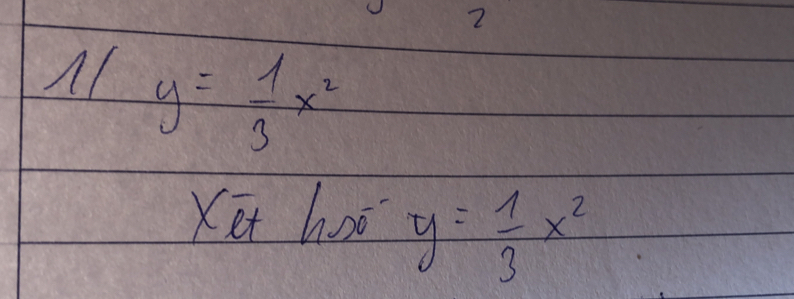 2
1/ y = 1/3 x²
Xét hsố y = 1/3 x²